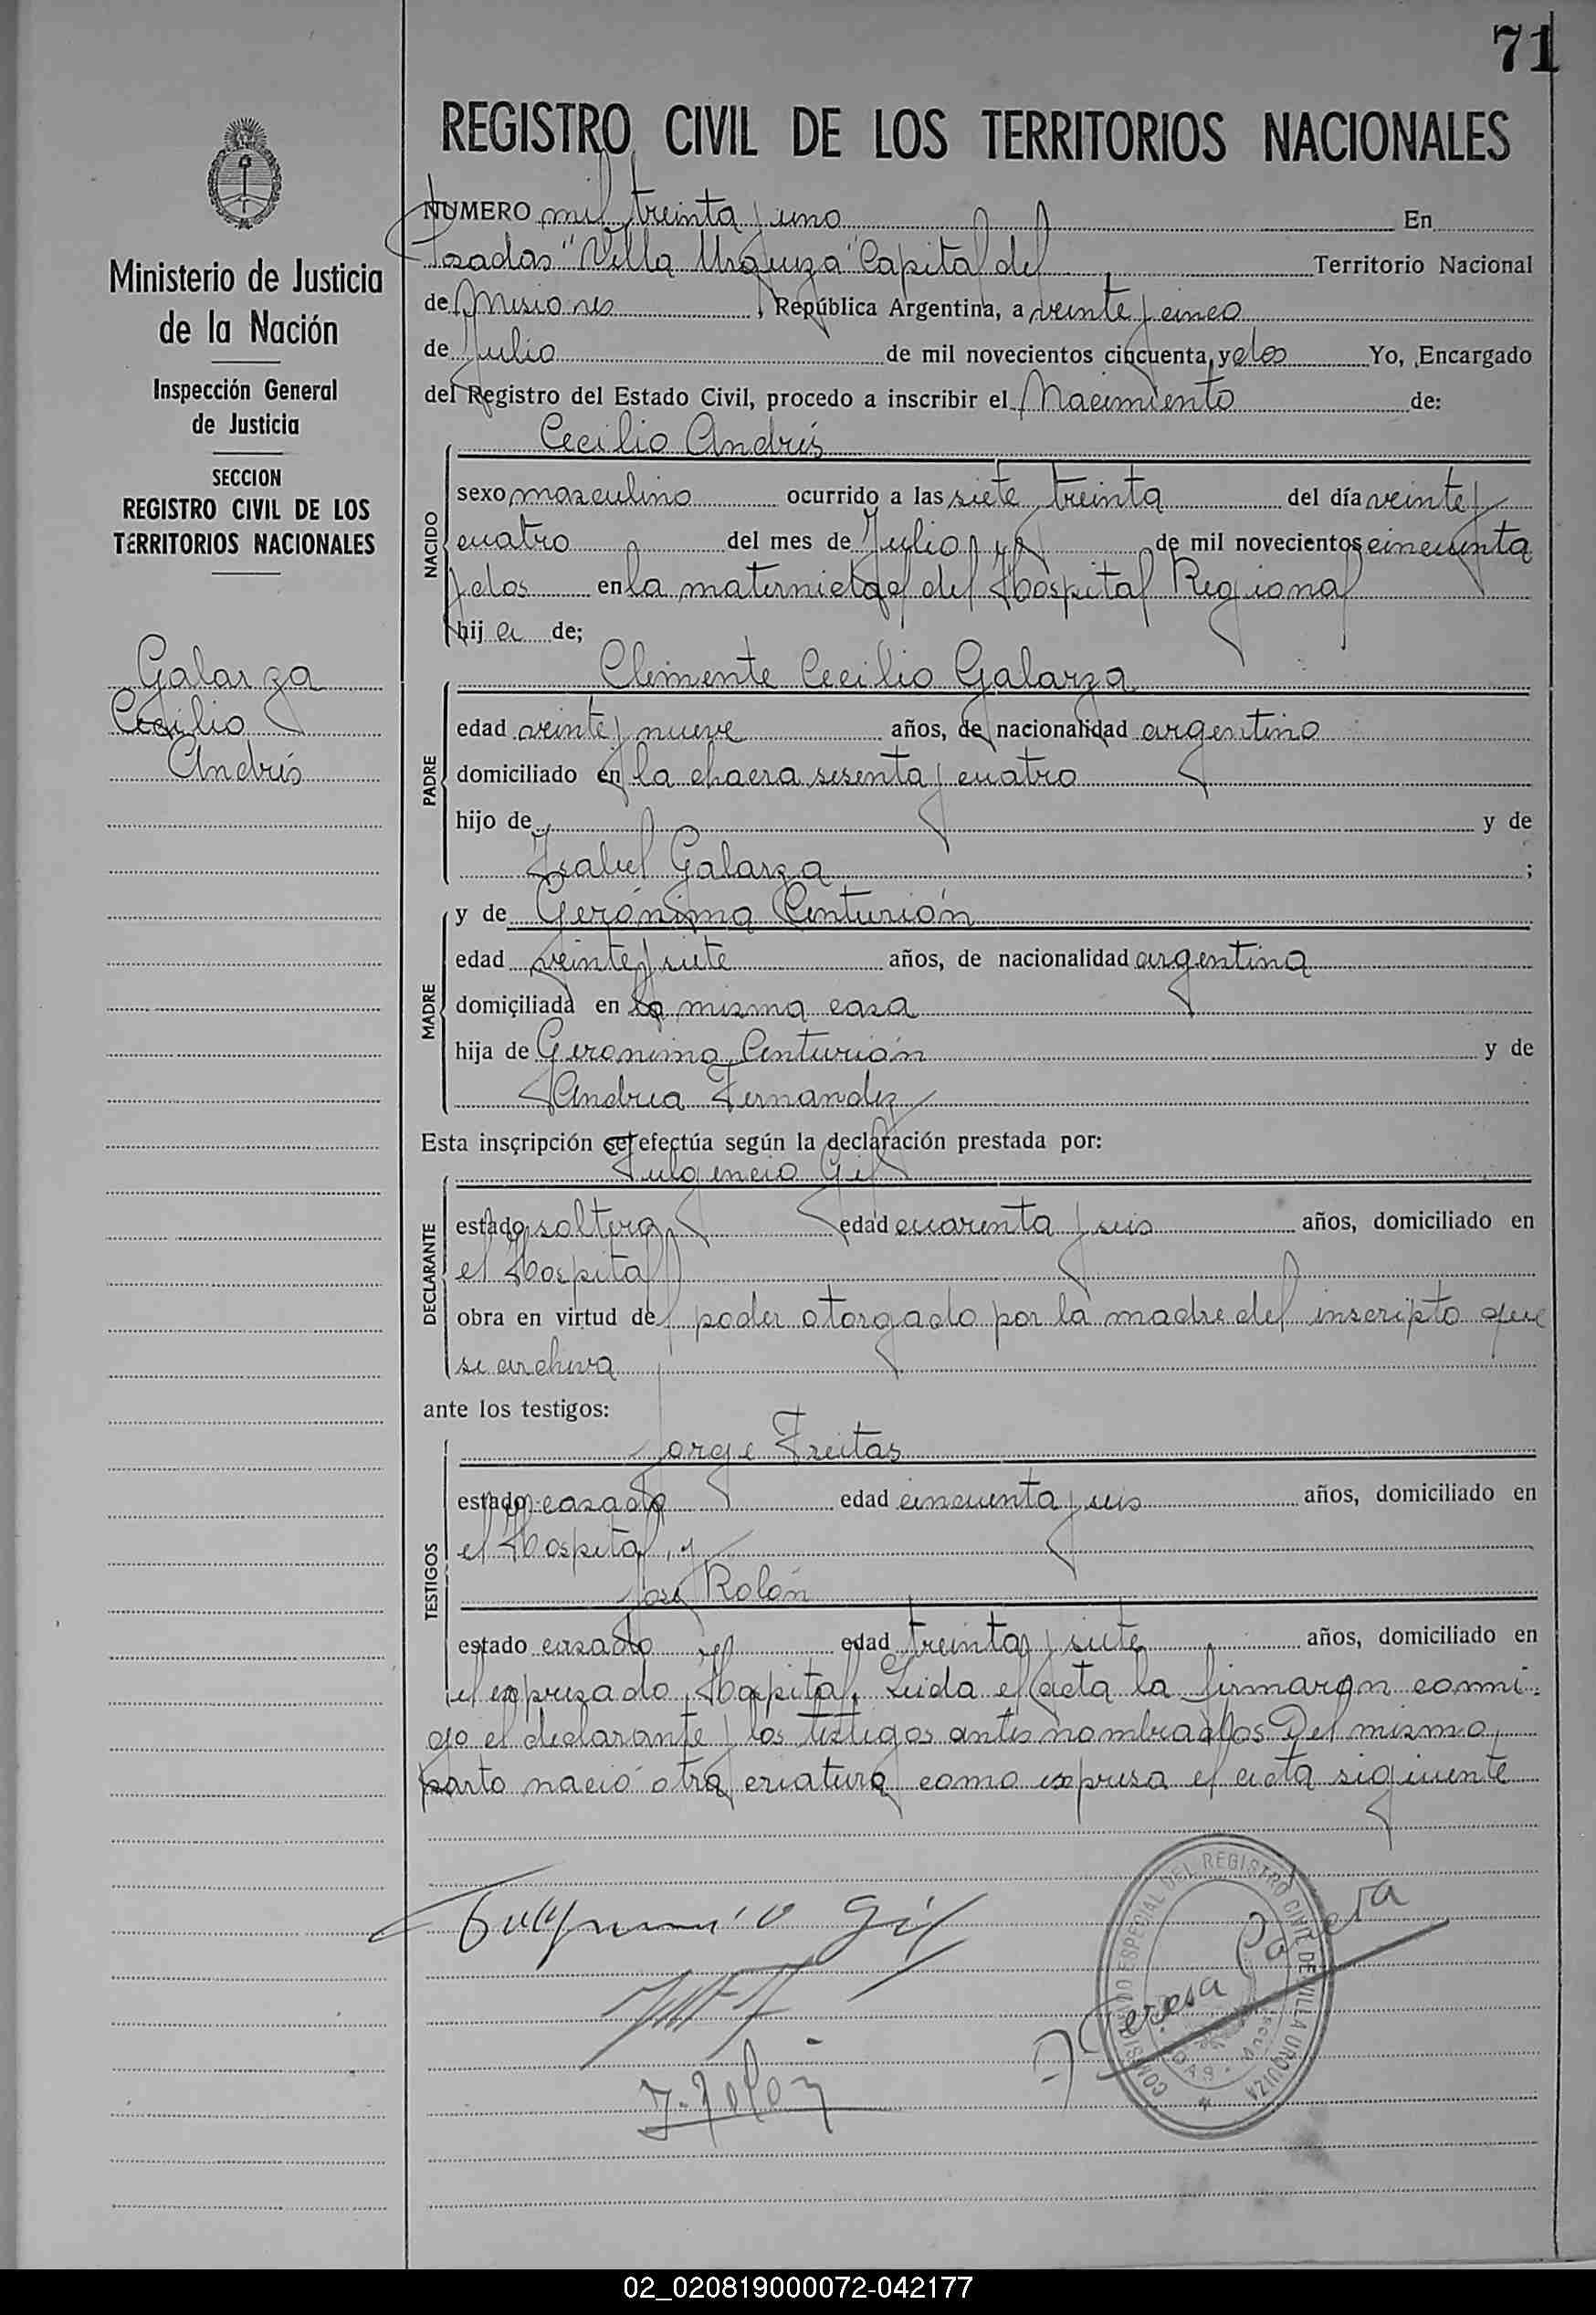 71
REGISTRO CIVIL DE LOS TERRITORIOS NACIONALES
Ministerio de Justicia
de la Nación
Inspección General
de Justicia
SECCION
REGISTRO CIVIL DE LOS
TERRITORIOS NACIONALES
Galarza
Cecilio
Andrés
NUMERO mil treinta y uno En
Posadas "Villa Urquiza" Capital del Territorio Nacional
de Misiones, República Argentina, a veinte y cinco
de Julio de mil novecientos cincuenta y dos Yo, Encargado
del Registro del Estado Civil, procedo a inscribir el Nacimiento de:
Cecilio Andrés
NACIDO
sexo masculino ocurrido a las siete treinta del día veinte y
cuatro del mes de Julio de mil novecientos cincuenta
y dos en la maternidad del Hospital Regional
hij o de;
Clemente Cecilio Galarza
PADRE
edad veinte y nueve años, de nacionalidad argentino
domiciliado en la chacra sesenta y cuatro
hijo de y de
Isabel Galarza ;
y de Gerónima Centurión
MADRE
edad veinte y siete años, de nacionalidad argentina
domiciliada en la misma casa
hija de Geronimo Centurión y de
Andrea Fernandez
Esta inscripción se efectúa según la declaración prestada por:
Fulgencio Gil
DECLARANTE
estado soltero edad cuarenta y seis años, domiciliado en
el Hospital
obra en virtud del poder otorgado por la madre del inscripto que
se archiva
ante los testigos:
Jorge Freitas
TESTIGOS
estado casado edad cincuenta y seis años, domiciliado en
el Hospital, y
José Rolón
estado casado edad treinta y siete años, domiciliado en
el expresado Hospital. Leida el acta la firmaron conmi-
go el declarante y los testigos antes nombrados. Del mismo
parto nació otra criatura como expresa el acta siguiente
Fulgencio Gil
J. Rolón
Teresa
COMISIONADO ESPECIAL DEL REGISTRO CIVIL DE VILLA URQUIZA
02_020819000072-042177